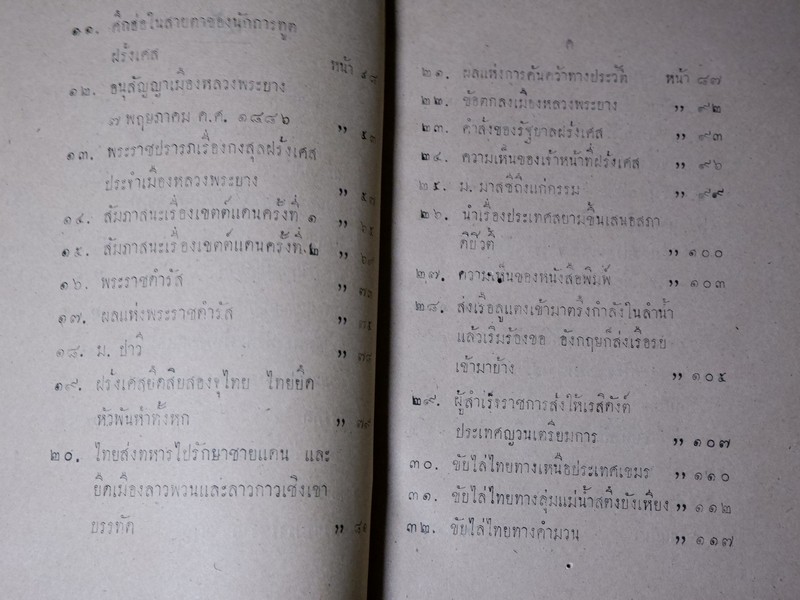 ๑๑. ศึกฮ่อในสายตาของนักการทูต
ฝรั่งเศส หน้า ๔๘
๑๒. อนุสัญญาเมืองหลวงพระบาง
๗ พฤษภาคม ค.ศ. ๑๘๘๖ ,, ๕๓
๑๓. พระราชปรารภเรื่องกงสุลฝรั่งเศส
ประจำเมืองหลวงพระบาง ,, ๕๗
๑๔. สัมภาสนะเรื่องเขตต์แดนครั้งที่ ๑ ,, ๖๕
๑๕. สัมภาสนะเรื่องเขตต์แดนครั้งที่ ๒ ,, ๖๙
๑๖. พระราชดำรัส ,, ๗๓
๑๗. ผลแห่งพระราชดำรัส ,, ๗๕
๑๘. ม. ปาวี ,, ๗๘
๑๙. ฝรั่งเศสยึดสิบสองจุไทย ไทยยึด
หัวพันห้าทั้งหก ,, ๗๙
๒๐. ไทยส่งทหารไปรักษาชายแดน และ
ยึดเมืองลาวพวนและลาวกาวเชิงเขา
บรรทัด ,,
๒๑. ผลแห่งการค้นคว้าทางประวัติ หน้า ๘๗
๒๒. ข้อตกลงเมืองหลวงพระบาง ,, ๙๒
๒๓. คำสั่งของรัฐบาลฝรั่งเศส ,, ๙๓
๒๔. ความเห็นของเจ้าหน้าที่ฝรั่งเศส ,, ๙๖
๒๕. ม. มาสซีถึงแก่กรรม ,, ๙๙
๒๖. นำเรื่องประเทศสยามขึ้นเสนอสภา
ดีปิวตี้ ,, ๑๐๐
๒๗. ความเห็นของหนังสือพิมพ์ ,, ๑๐๓
๒๘. ส่งเรือลูแตงเข้ามาตรึงกำลังในลำน้ำ
แล้วเริ่มร้องขอ อังกฤษก็ส่งเรือรบ
เข้ามาบ้าง ,, ๑๐๕
๒๙. ผู้สำเร็จราชการส่งให้เรสิดังต์
ประเทศญวนเตรียมการ ,, ๑๐๗
๓๐. ขับไล่ไทยทางเหนือประเทศเขมร ,, ๑๑๐
๓๑. ขับไล่ไทยทางลุ่มแม่น้ำสตึงบังเหียง ,, ๑๑๒
๓๒. ขับไล่ไทยทางคำมวน ,, ๑๑๗